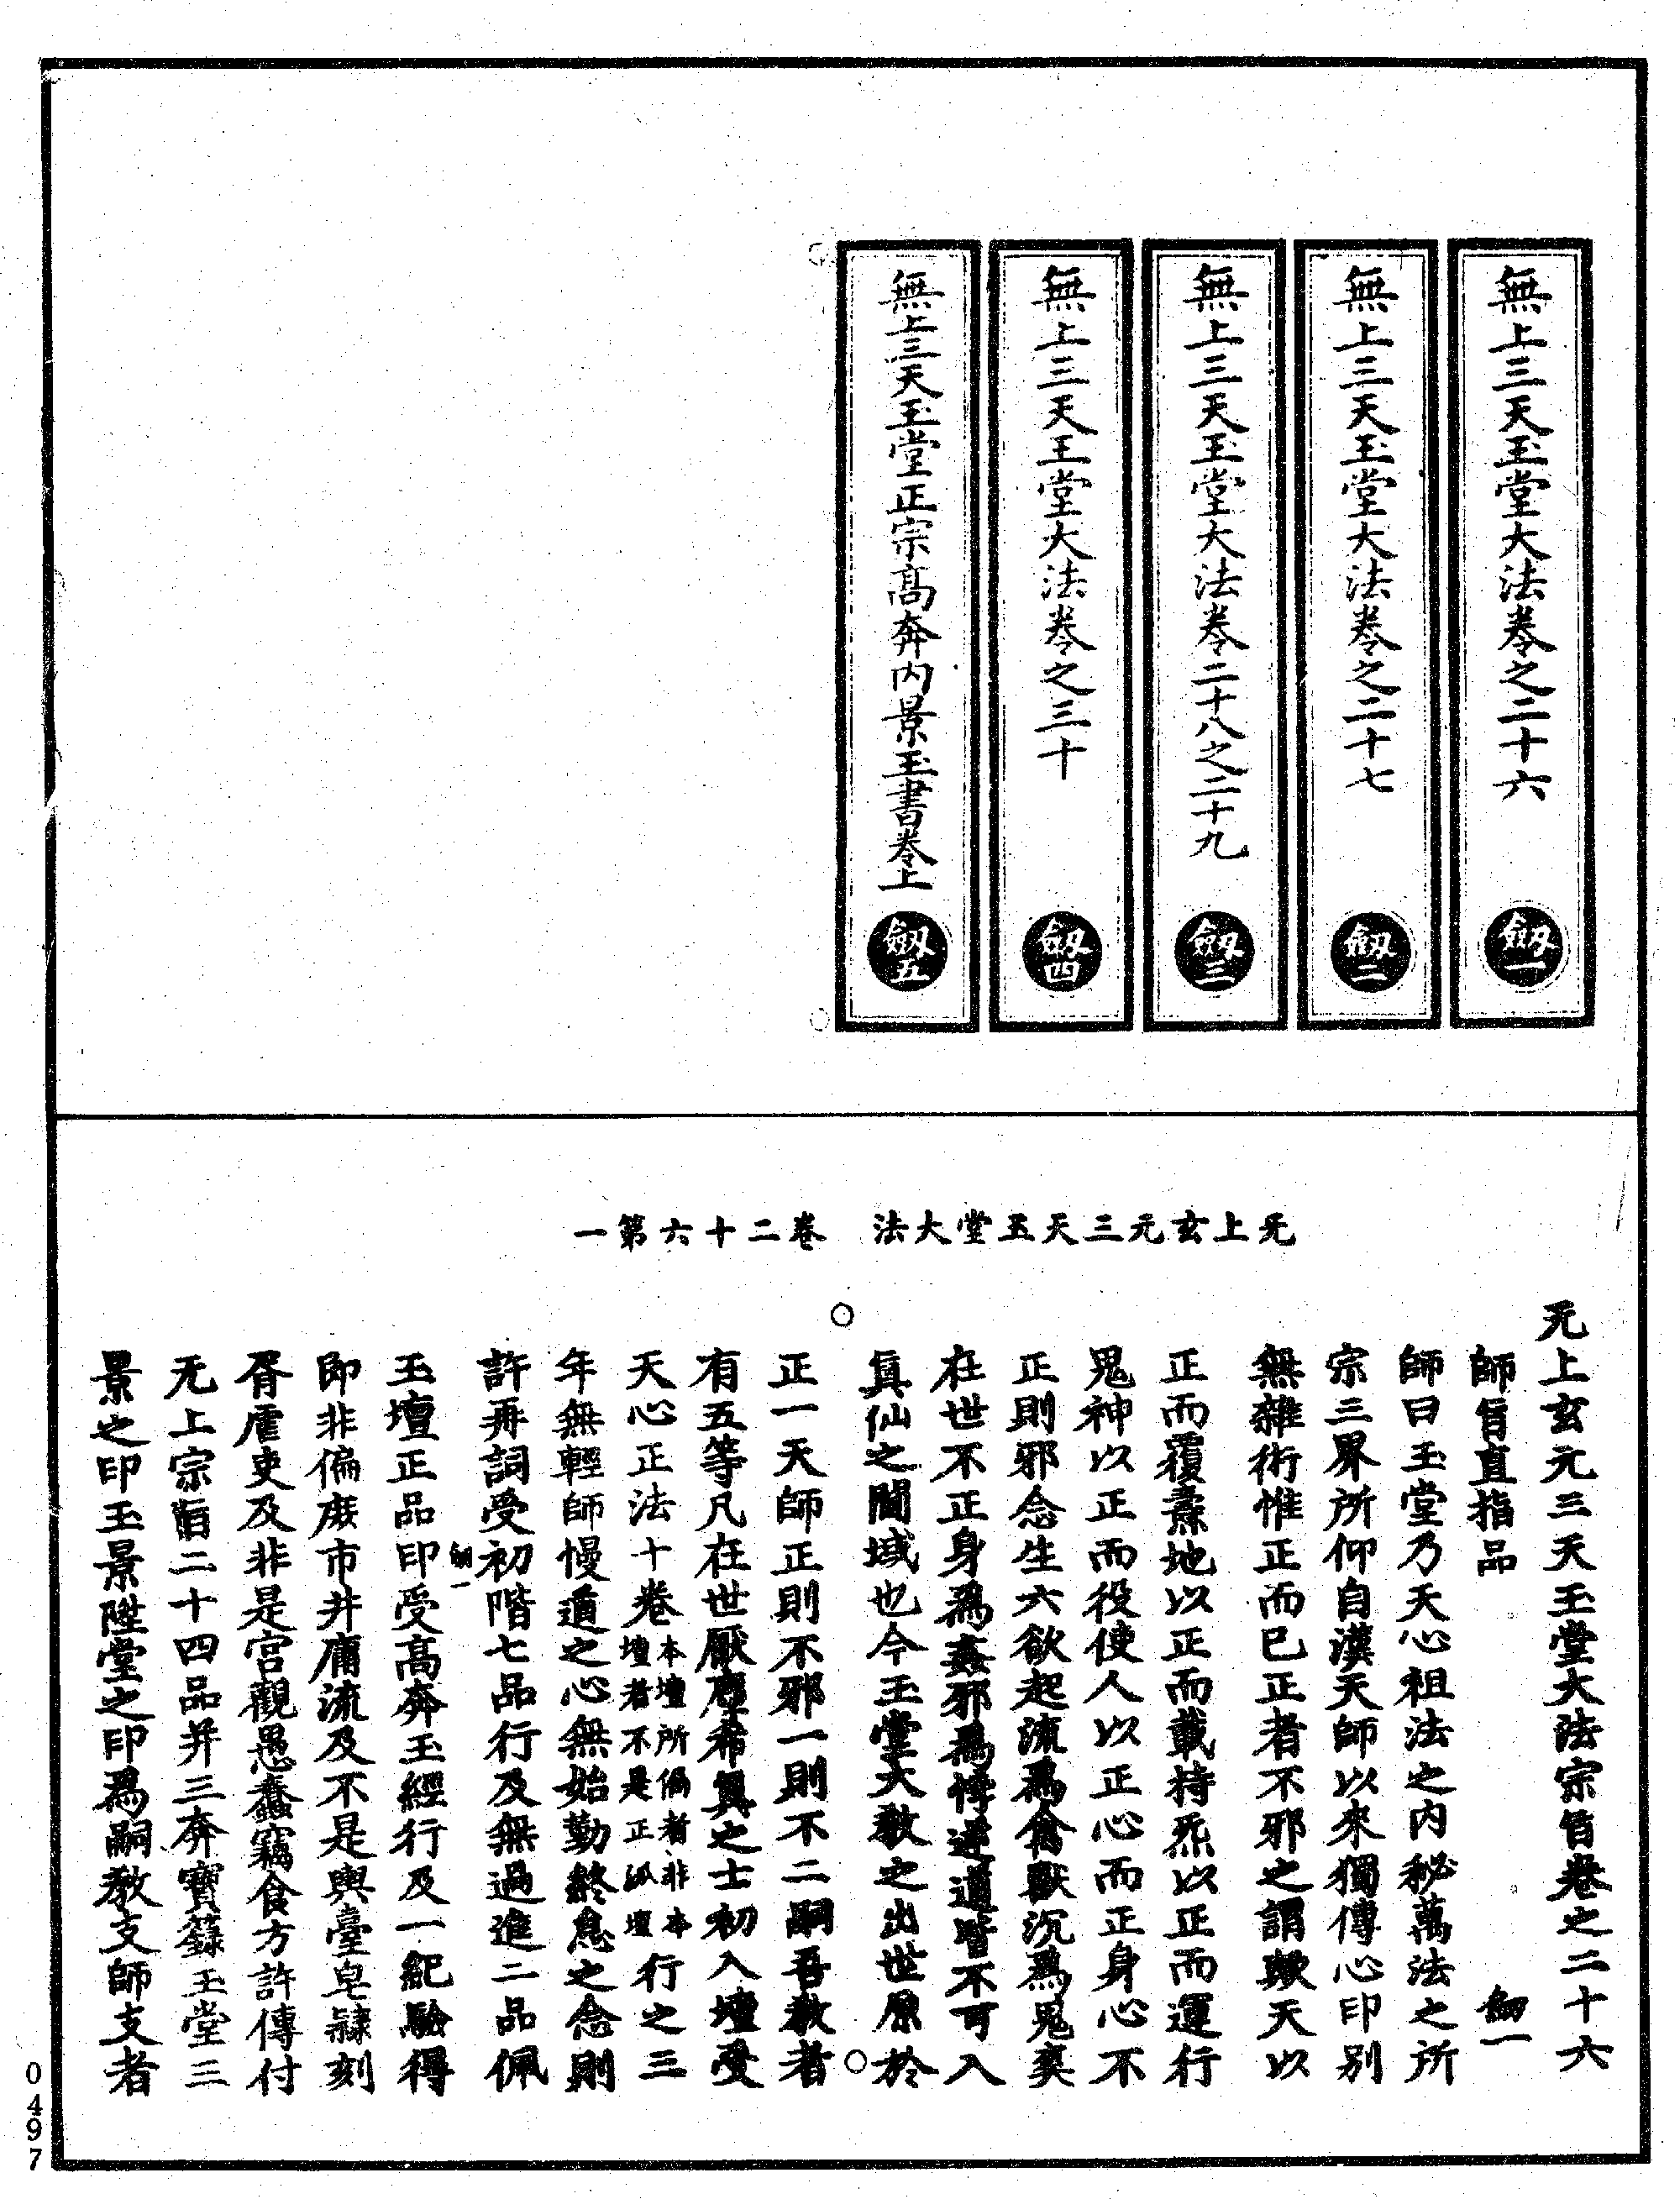 無上三天玉堂大法卷之二十六 劒一
無上三天玉堂大法卷之二十七 劒二
無上三天玉堂大法卷二十八之二十九 劒三
無上三天玉堂大法卷之三十 劒四
無上三天玉堂正宗髙奔内景玉書卷上 劒五
无上玄元三天玉堂大法 卷二十六第一
无上玄元三天玉堂大法宗旨卷之二十六
師旨直指品 劒一
師曰玉堂乃天心祖法之内秘萬法之所
宗三界所仰自漢天師以來獨傳心印别
無雜術惟正而已正者不邪之謂歟天以
正而覆燾地以正而載持炁以正而運行
鬼神以正而役使人以正心而正身心不
正則邪念生六欲起流爲禽獸沉爲鬼䰡
在世不正身爲姦邪爲悖逆道皆不可入
真仙之閫域也今玉堂大教之出世原於
正一天師正則不邪一則不二嗣吾教者
有五等凡在世厭塵希真之士初入壇受
天心正法十卷本壇所偽者非本壇者不是正派壇行之三
年無輕師慢道之心無始勤終怠之念則
許再詞受初階七品行及無過進二品佩
劒一
玉壇正品印受髙奔玉經行及一紀驗得
即非偏廢市井庸流及不是輿臺皂隷刻
胥虐吏及非是宫觀愚蠢竊食方許傳付
无上宗旨二十四品并三奔寶籙玉堂三
景之印玉景陞堂之印爲嗣教支師支者
0497